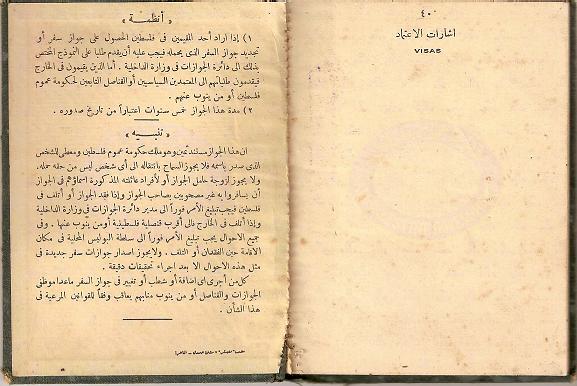 ٤٠
اشارات الاعتماد
VISAS
« أنظمة »
١) إذا أراد أحد المقيمين في فلسطين الحصول على جواز سفر أو
تجديد جواز السفر الذى يحمله فيجب عليه أن يقدم طلبا على النموذج المختص
بذلك الى دائرة الجوازات فى وزارة الداخلية . أما الذين يقيمون فى الخارج
فيقدمون طلباتهم الى المعتمدين السياسيين أو القناصل التابعين لحكومة عموم
فلسطين أو من ينوب عنهم .
٢) مدة هذا الجواز خمس سنوات اعتباراً من تاريخ صدوره .
« تنبيه »
ان هذا الجواز مستند ثمين وهو ملك حكومة عموم فلسطين ومعطى للشخص
الذى صدر باسمه فلا يجوز السماح بانتقاله الى أى شخص ليس من حقه حمله .
ولا يجوز لزوجة حامل الجواز أو لأفراد عائلته المذكورة اسماؤهم فى الجواز
أن يسافروا به غير مصحوبين بصاحب الجواز وإذا فقد الجواز أو أتلف فى
فلسطين فيجب تبليغ الأمر فوراً الى مدير دائرة الجوازات فى وزارة الداخلية
وإذا أتلف فى الخارج فالى أقرب قنصلية فلسطينية أو من ينوب عنها . وفى
جميع الاحوال يجب تبليغ الأمر فوراً الى سلطة البوليس المحلية فى مكان
الاقامة حين الفقدان أو التلف . ولا يجوز اصدار جوازات سفر جديدة فى
مثل هذه الاحوال الا بعد اجراء تحقيقات دقيقة .
كل من أجرى اى اضافة أو شطب أو تغيير فى جواز السفر ماعدا موظفى
الجوازات والقناصل أو من ينوب منابهم يعاقب وفقاً للقوانين المرعية فى
هذا الشأن .